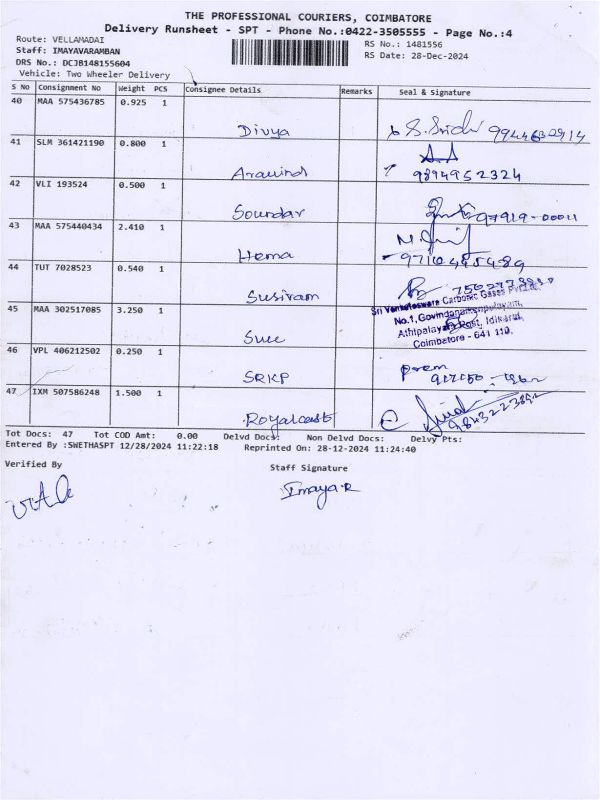 THE PROFESSIONAL COURIERS, COIMBATORE
Delivery Runsheet - SPT - Phone No.:0422-3505555 - Page No.:4
Route: VELLAMADAI
RS No.: 1481556
Staff: IMAYAVARAMBAN
RS Date: 28-Dec-2024
DRS No.: DCJB148155604
Vehicle: Two Wheeler Delivery
S No Consignment No Weight PCS Consignee Details Remarks Seal & Signature
40 MAA 575436785 0.925 1
Divya
41 SLM 361421190 0.800 1
Aravind 9894952324
42 VLI 193524 0.500 1
Soundar 97919-00011
43 MAA 575440434 2.410 1
Hema
44 TUT 7028523 0.540 1
Susiram
Sri Venkateswara Carbonic Gases Pvt Ltd.,
No.1, Govindanaickenpalayam,
Athipalayam Post, Idikarai,
Coimbatore - 641 110.
45 MAA 302517085 3.250 1
46 VPL 406212502 0.250 1
prem
SRKP
47 IXM 507586248 1.500 1
Royalcast
Tot Docs: 47 Tot COD Amt: 0.00 Delvd Docs: Non Delvd Docs: Delvy Pts:
Entered By :SWETHASPT 12/28/2024 11:22:18 Reprinted On: 28-12-2024 11:24:40
Verified By
Staff Signature
Imaya.R